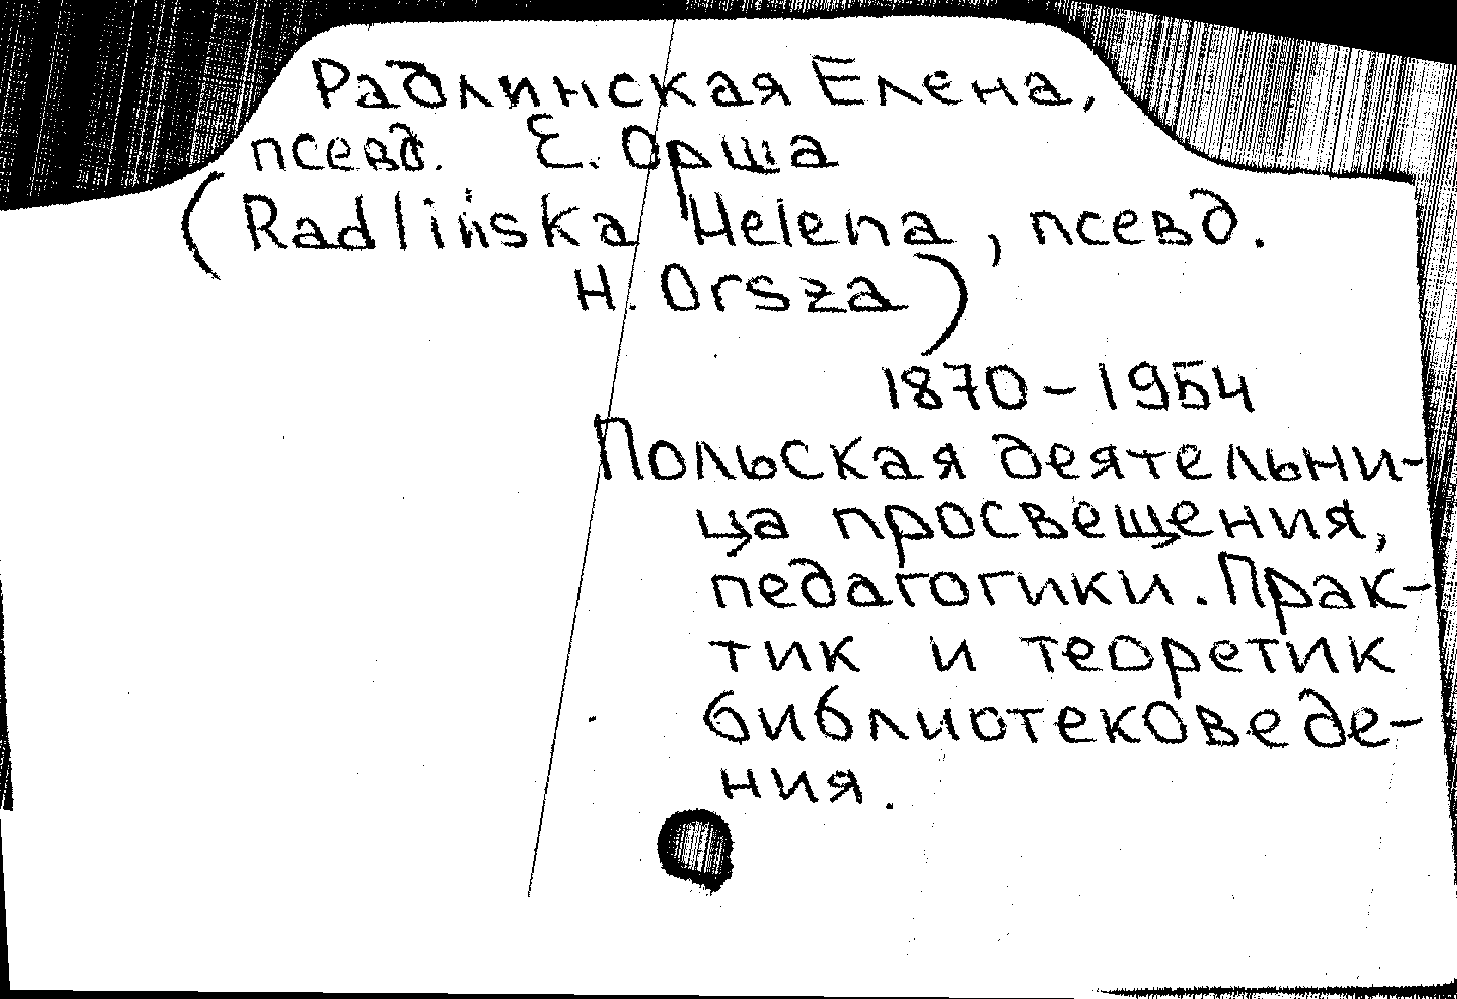 Радлинская Елена,
псевд. Е. Орша
(Radlińska Helena, псевд.
H. Orsza)
1870-1954
Польская деятельни-
ца просвещения,
педагогики. Прак-
тик и теоретик
библиотековеде-
ния.